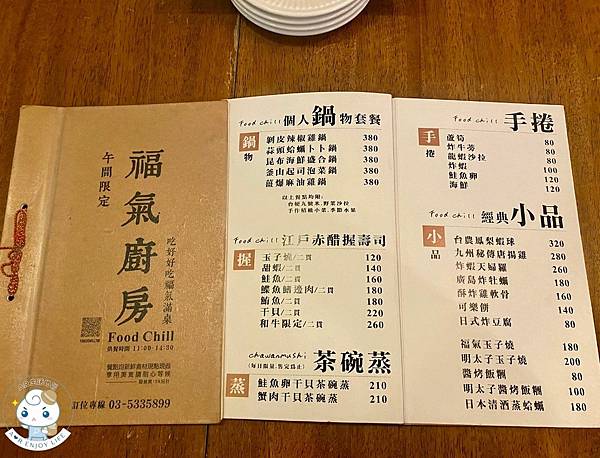 午間限定
福氣廚房
吃好好吃福氣滿桌
Food Chill
供餐時間 11:00-14:30
訂位專線 03-5335899
Food chill 個人鍋物套餐
鍋物
剝皮辣椒雞鍋 380
蒜頭蛤蠣卜卜鍋 380
昆布海鮮盛合鍋 380
釜山起司泡菜鍋 380
薑爆麻油雞鍋 380
以上餐點均附:
台梗九號米.野菜沙拉
手作精緻小菜.季節水果
Food chill 江戶赤醋握壽司
握
玉子燒/二貫 120
甜蝦/二貫 140
鮭魚/二貫 160
鰈魚鰭邊肉/二貫 180
鮪魚/二貫 180
干貝/二貫 220
和牛限定/二貫 260
chawanmushi 茶碗蒸
(每日限量.售完為止)
蒸
鮭魚卵干貝茶碗蒸 210
蟹肉干貝茶碗蒸 210
Food chill 手捲
手捲
蘆筍 80
炸牛蒡 80
龍蝦沙拉 80
炸蝦 100
鮭魚卵 120
海鮮 120
Food chill 經典小品
小品
台農鳳梨蝦球 320
九州秘傳唐揚雞 280
炸蝦天婦羅 260
廣島炸牡蠣 180
酥炸雞軟骨 160
可樂餅 140
日式炸豆腐 80
福氣玉子燒 80
明太子玉子燒 180
醬烤飯糰 80
明太子醬烤飯糰 100
日本清酒蒸蛤蠣 180
A♥R ENJOY LIFE